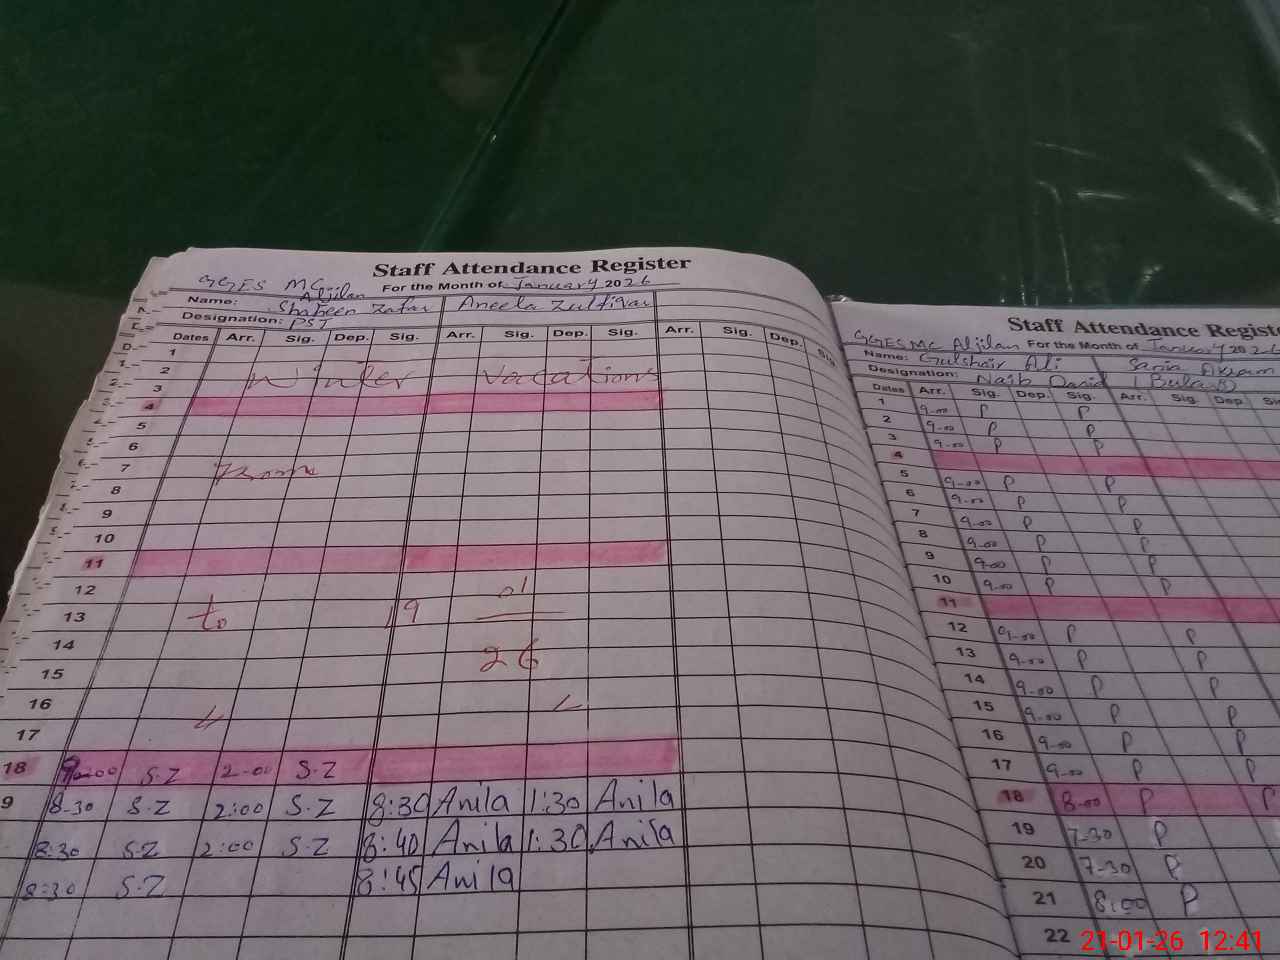 Staff Attendance Register
GGES MC Aljilan For the Month of January 2026
Name: Shaheen Zafar Aneela Zulfiqar
Designation: PST
Dates Arr. Sig. Dep. Sig. Arr. Sig. Dep. Sig. Arr. Sig. Dep. Sig
1
2 Winter Vacations
3
4
5
6
7 From
8
9
10
11
12 01
13 to 19
14 26
15
16
17
18 9:00 S.Z 2-00 S.Z
9 8-30 S.Z 2:00 S.Z 8:30 Anila 1:30 Anila
8:30 S.Z 2:00 S.Z 8:40 Anila 1:30 Anila
8:30 S.Z 8:45 Anila
Staff Attendance Registe
GGESMC Aljilan For the Month of January 2026
Name: Gulshair Ali Saria Akram
Designation: Naib Qasid
Dates Arr. Sig. Dep. Sig. Arr. Sig. Dep. Sig
1 9-00 P P
2 9-00 P P
3 9-00 P P
4
5 9-00 P P
6 9-00 P P
7 9-00 P P
8 9-00 P P
9 9-00 P P
10 9-00 P P
11
12 9-00 P P
13 9-00 P P
14 9-00 P P
15 9-00 P P
16 9-00 P P
17 9-00 P P
18 8-00 P P
19 7-30 P
20 7-30 P
21 8:00 P
22
21-01-26 12:41